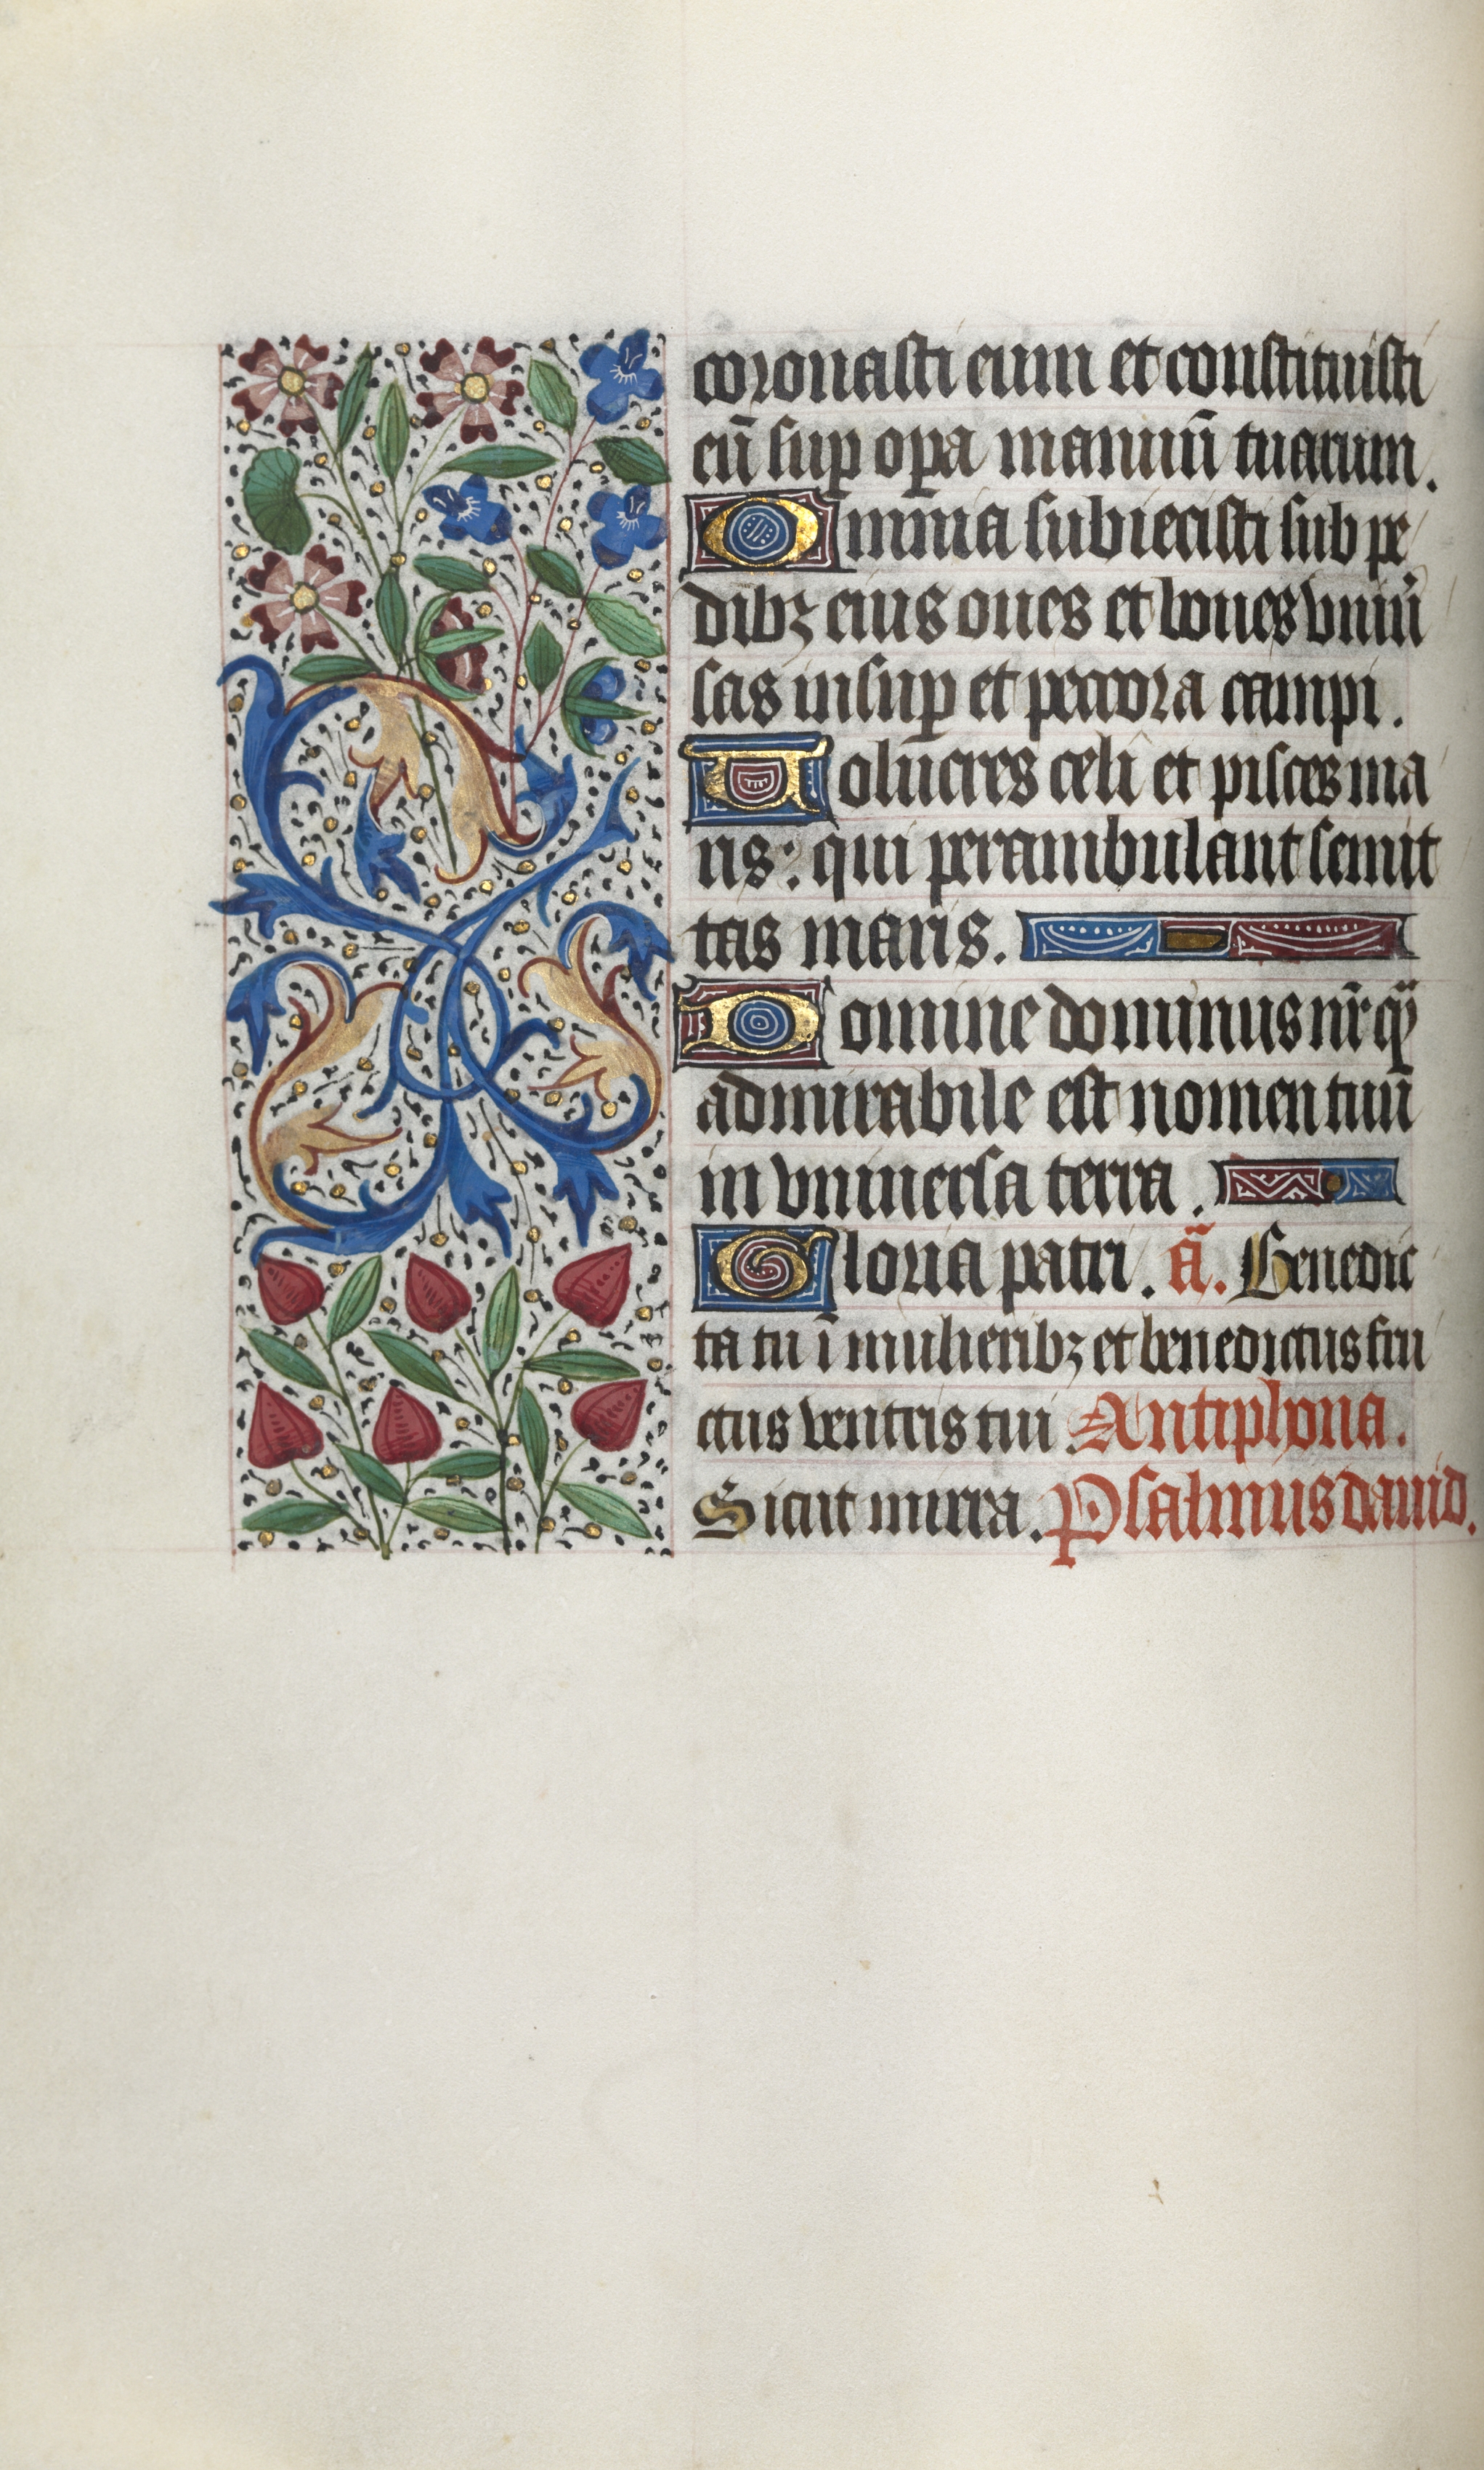 coronasti eum et constituisti
eū sup opa manuū tuarum.
Omnia subiecisti sub pe
dibꝫ eius oues et boues vniū
sas insup et pecora campi.
Volucres celi et pisces ma
ris: qui perambulant semit
tas maris.
Domine dominus nr̄ qͥ
admirabile est nomen tuū
in vniuersa terra.
Gloria patri. ā. Benedic
ta tu ī mulieribꝫ et benedictus fru
ctus ventris tui. Antiphona.
Sicut mirra. Psalmus dauid.